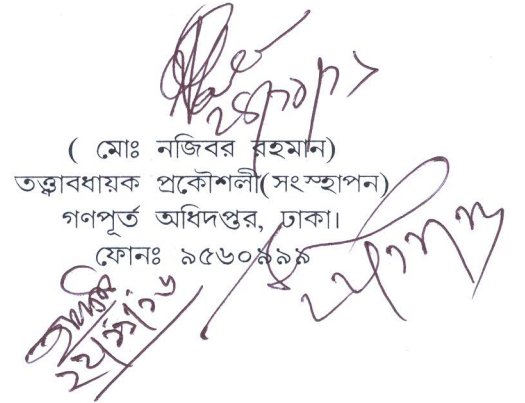 ( মোঃ নজিবর রহমান)
তত্ত্বাবধায়ক প্রকৌশলী(সংস্হাপন)
গণপূর্ত অধিদপ্তর, ঢাকা।
ফোনঃ ৯৫৬০৯৯৯